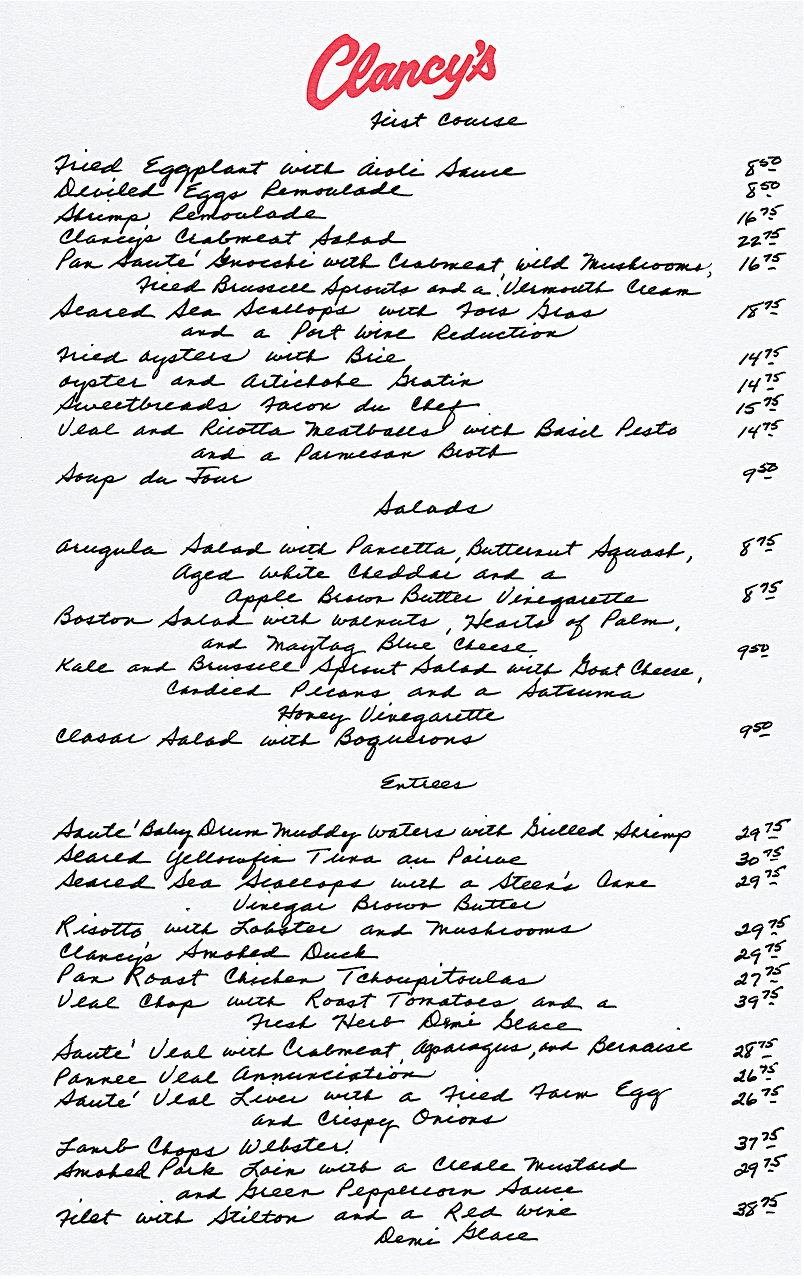 Clancy's
First Course
Fried Eggplant with Aioli Sauce 8 50
Deviled Eggs Remoulade 8 50
Shrimp Remoulade 16 75
Clancy's Crabmeat Salad 22 75
Pan Sauté Gnocchi with Crabmeat, Wild Mushrooms, 16 75
Fried Brussell Sprouts and a Vermouth Cream
Seared Sea Scallops with Fois Gras 18 75
and a Port Wine Reduction
Fried Oysters with Brie 14 75
Oyster and Artichoke Gratin 14 75
Sweetbreads Facon du Chef 15 75
Veal and Ricotta Meatballs with Basil Pesto 14 75
and a Parmesan Broth
Soup du Jour 9 50
Salads
Arugula Salad with Pancetta, Butternut Squash, 8 75
Aged White Cheddar and a
Apple Brown Butter Vinegarette 8 75
Boston Salad with Walnuts, Hearts of Palm,
and Maytag Blue Cheese 9 50
Kale and Brussell Sprout Salad with Goat Cheese,
Candied Pecans and a Satsuma
Honey Vinegarette
Ceasar Salad with Boquerons 9 50
Entrees
Sauté Baby Drum Muddy Waters with Grilled Shrimp 29 75
Seared Yellowfin Tuna au Poivre 30 75
Seared Sea Scallops with a Steen's Cane 29 75
Vinegar Brown Butter
Risotto with Lobster and Mushrooms 29 75
Clancy's Smoked Duck 29 75
Pan Roast Chicken Tchoupitoulas 27 75
Veal Chop with Roast Tomatoes and a 39 75
Fresh Herb Demi Glace
Sauté Veal with Crabmeat, Aparagus, and Bernaise 28 75
Pannee Veal Annunciation 26 75
Sauté Veal Liver with a Fried Farm Egg 26 75
and Crispy Onions
Lamb Chops Webster 37 75
Smoked Pork Loin with a Creole Mustard 29 75
and Green Peppercorn Sauce
Filet with Stilton and a Red Wine 38 75
Demi Glace